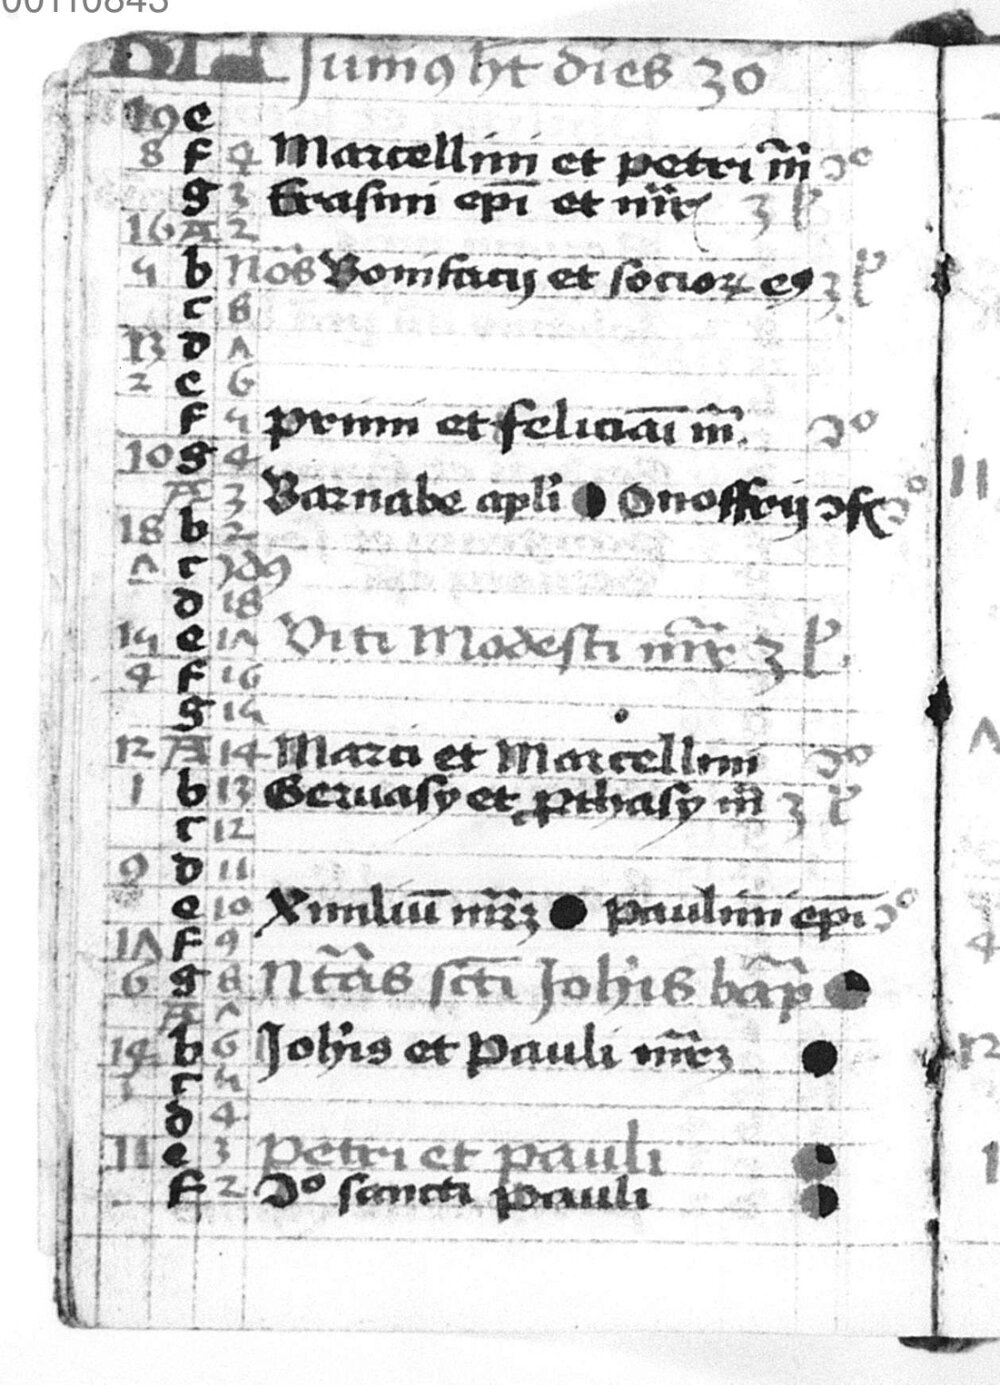 00110843
KL Juniꝰ ht dies 30
19 e
8 f 4 Marcellini et petri m̄ ↄº
g 3 Erasmi ep̄i et mr̄ 3 l
16 A 2
5 b Noͣs Bonifacij et socioꝝ eꝰ 3 l
c 8
13 d ʌ
2 e 6
f 5 primi et feliciāi m̄. ↄº
10 g 4
A 3 Barnabe apl̄i Onoffrij ↄf ↄº
18 b 2
ʌ c Jdꝰ
d 18
15 e 1ʌ Viti Modesti mr̄ 3 l.
4 f 16
g 15
12 A 14 Marci et Marcellini ↄº
1 b 13 Geruasy et ꝓthasy m̄ 3 l
c 12
9 d 11
e 10 Xmiliū mr̄ꝝ paulini ep̄i ↄº
1ʌ f 9
6 g 8 Nt̄āis sc̄ti Joh̄is bāp
A ʌ
14 b 6 Joh̄is et Pauli mr̄ꝝ
c 5
d 4
11 e 3 Petri et pauli
f 2 Ↄº sancti pauli